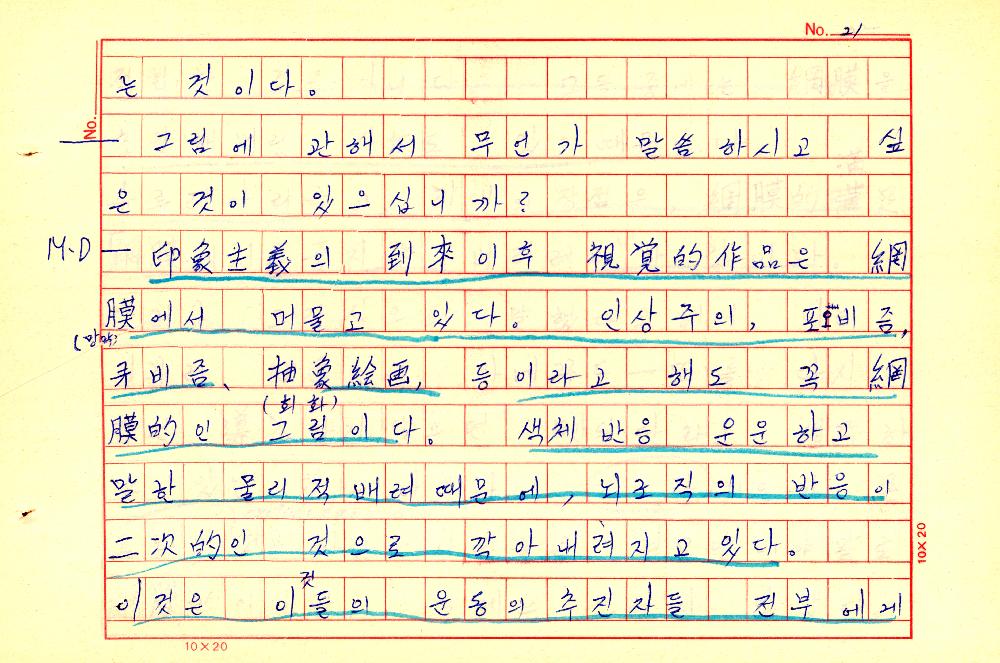 No. 21
는 것이다。
No.
— 그림에 관해서 무언가 말씀하시고 싶
은 것이 있으십니까?
M·D — 印象主義의 到來이후 視覚的作品은 網
膜에서 머물고 있다。 인상주의, 포비즘,
(망막)
큐비즘、 抽象絵画, 등이라고 해도 꼭 網
(회화)
膜的인 그림이다。 색체 반응 운운하고
말한 물리적배려때문에, 뇌조직의 반응이
二次的인 것으로 깍아내려지고 있다。
이것은 이것들의 운동의 추진자들 전부에게
10×20
10×20